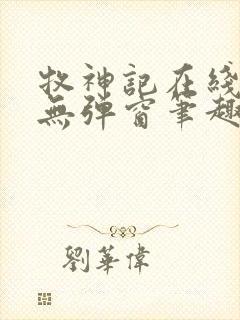 牧神記在綫
無彈窗筆趣
劉華偉